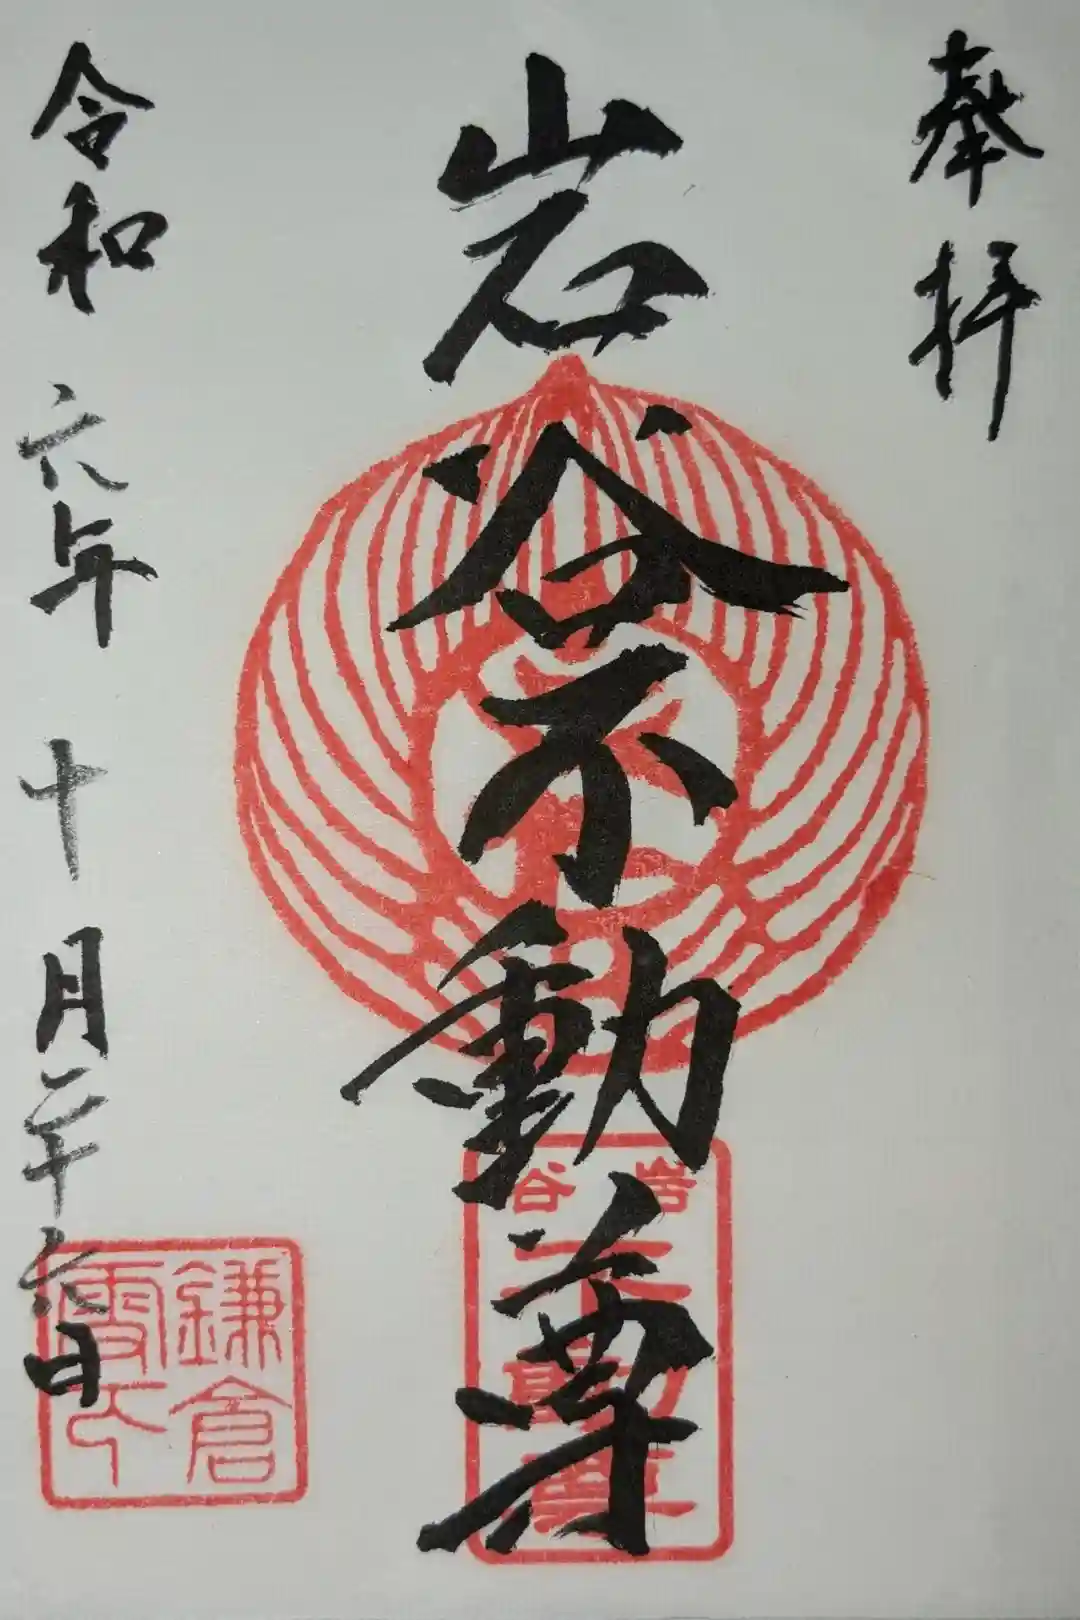 奉拝
岩谷不動尊
令和六年十月二十六日
岩谷
不動尊
鎌倉